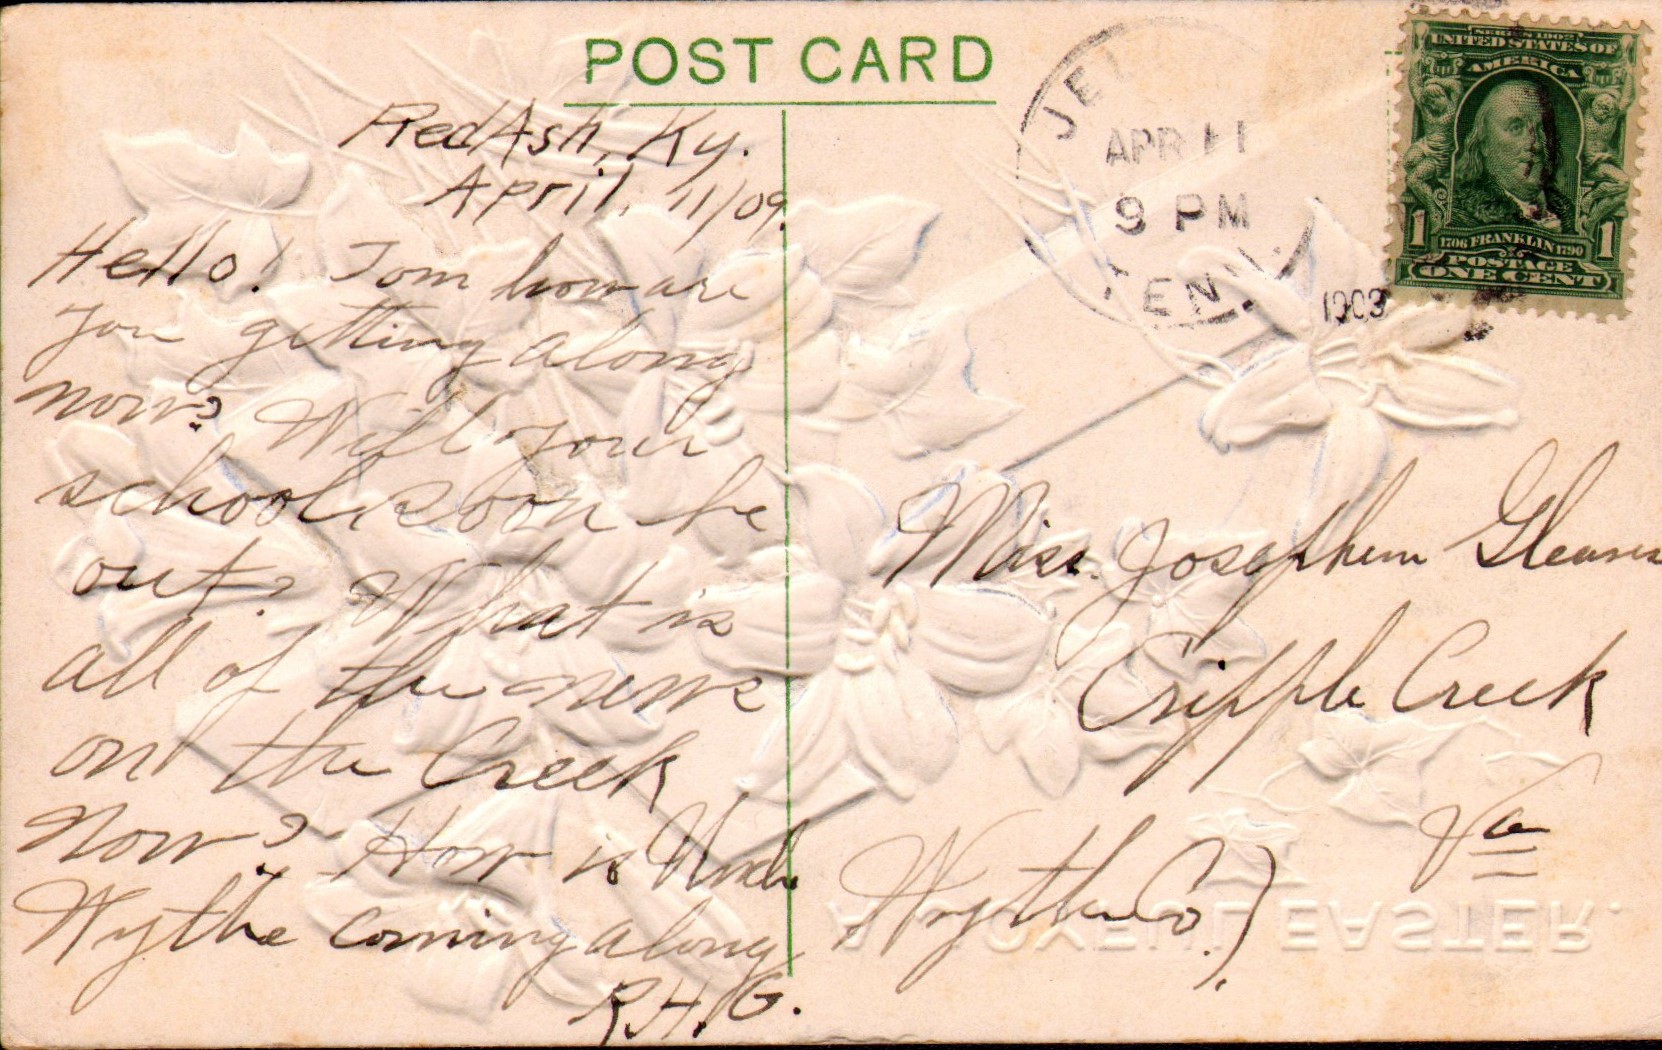 POST CARD
Red Ash, Ky.
April, 11/09.
Hello! Tom how are
you getting along
now? Will your
school soon be
out? What is
all of the news
on the Creek
Now? How is Uncle
Wythe coming along
R.H.G.
JEL
APR 11
9 PM
TENN.
1909
SERIES 1902
UNITED STATES OF
AMERICA
1 1
1706 FRANKLIN 1790
POSTAGE
ONE CENT
Miss. Josephine Gleaves
Cripple Creek
Va
Wythe Co.)
A JOYFUL EASTER.